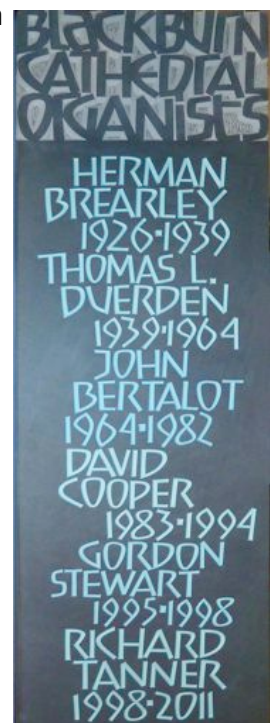 BLACKBURN
CATHEDRAL
ORGANISTS
HERMAN
BREARLEY
1926·1939
THOMAS L.
DUERDEN
1939·1964
JOHN
BERTALOT
1964·1982
DAVID
COOPER
1983·1994
GORDON
STEWART
1995·1998
RICHARD
TANNER
1998·2011